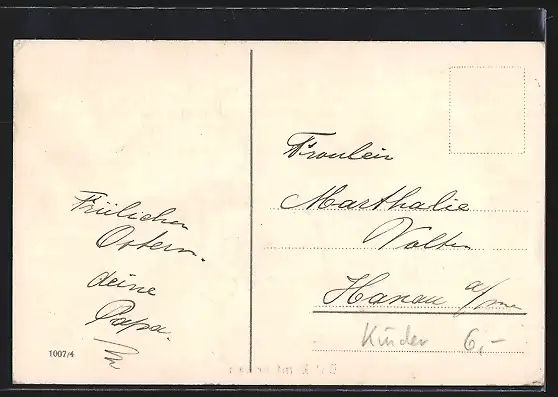 Frülichen
Ostern.
deine
Papa.
1007/4
Fraulein
Marthalie
Wolter
Hanau a/m
Kinder 6,-